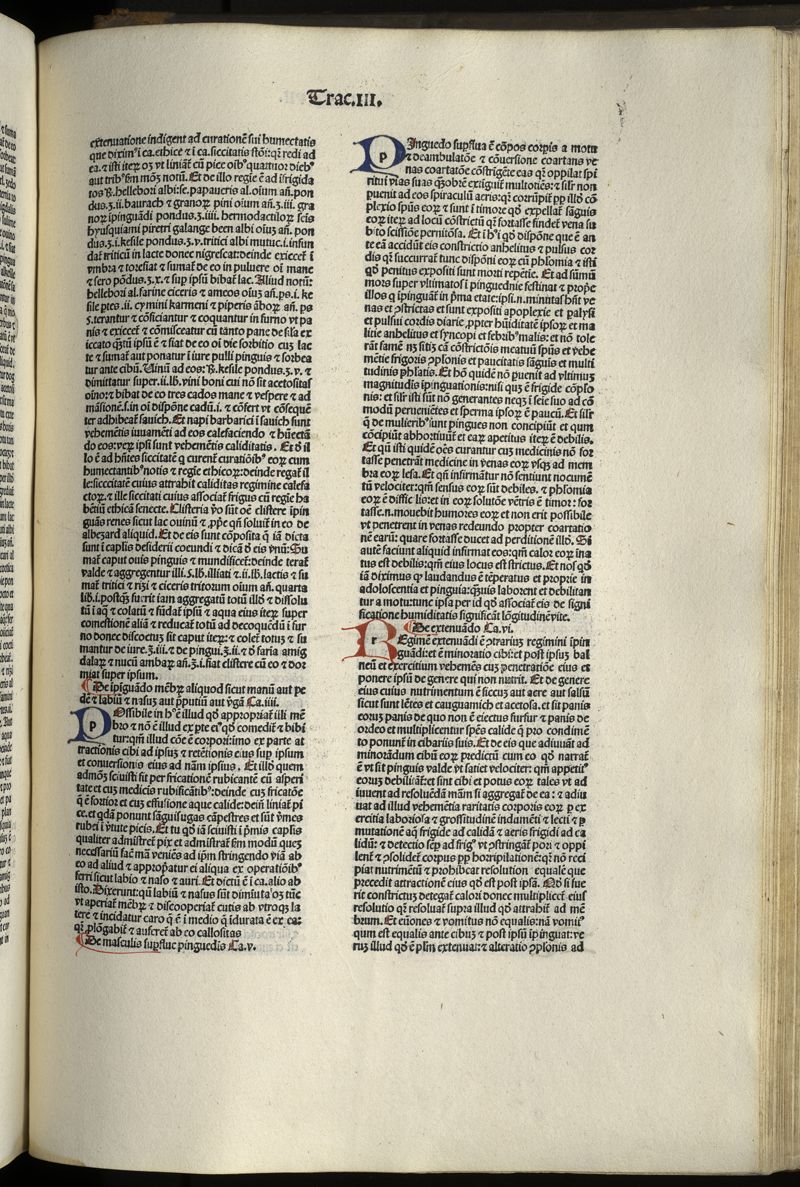 Trac.III.
extenuatione indigent ad curationē sui humectatis
que dixim⁹ i ca. ethice ⁊ i ca. siccitatis stōi: qꝫ redi ad
ea. ⁊ isti iteꝝ oꝫ vt liniāt cū pice oib⁹ quattuor dieb⁹
aut trib⁹ ẜm mōꝫ notū. Et de illo regiē ē ad ifrigida
tos ℞. hellebori albi: se. papaueris al. oium añ. pon
dus. ʒ.ii. baurach ⁊ granoꝝ pini oium añ. ʒ.iii. gra
noꝝ ipinguādi pondus. ʒ.iiii. hermodactiloꝝ seis
hyusquiami piretri galange been albi oiuꝫ añ. pon
dus. ʒ.i. kesile pondus. ʒ.v. tritici albi mutuc.i. infun
dat̄ triticū in lacte donec nigrescat: deinde exiccet̄ i
vmbra ⁊ torefiat ⁊ sumat̄ de eo in puluere oī mane
⁊ sero pōdus. ʒ.x. ⁊ sup ipsū bibat̄ lac. Aliud notū:
hellebori al. farine ciceris ⁊ ameos oiuꝫ añ. ps.i. ke
sile ptes.ii. cymini karmeni ⁊ piperis āboꝝ añ. ps
s. terantur ⁊ cōficiantur ⁊ coquantur in furno vt pa
nis ⁊ exiccet̄ ⁊ cōmisceatur cū tanto pane de sila ex
iccato qȝtū ipsū ē ⁊ fiat de eo oī die sorbitio cuꝫ lac
te ⁊ sumat̄ aut ponatur ī iure pulli pinguis ⁊ sorbea
tur ante cibū. Uinū ad eos: ℞. kesile pondus. ʒ.v. ⁊
dimittatur super.ii. lb. vini boni cui nō sit acetositas
oīno: ⁊ bibat de eo tres cados mane ⁊ vespere ⁊ ad
māsionē. s. in oī dispōne cadū.i. ⁊ cōfert vt cōsequē
ter adhibeat̄ sauich. Et napi barbarici ī sauich sunt
vehemētis iuuamēti ad eos calefaciendo ⁊ hūectā
do eos: veꝝ ipsi sunt vehemētis caliditatis. Et ō il
lo ē ad hñtes siccitatē ꝙ curent̄ curatiōib⁹ eoꝝ cum
humectantib⁹ notis ⁊ regiē ethicoꝝ: deinde regat̄ il
le: siccitatē cuius attrabit caliditas regimine calefa
ctoꝝ. ⁊ ille siccitati cuius associat̄ frigus cū regiē ha
bētiū ethicā senecte. Clisteria v̄o sūt oē clistere ipin
guās renes sicut lac ouinū ⁊ ꝓpe qn̄ soluit̄ in eo de
albezard aliquid. Et de eis sunt cōposita ꝙ iā dicta
sunt ī caplis desiderii coeundi ⁊ dicā ō eis vnū: Su
mat̄ caput ouis pinguis ⁊ mundificet̄: deinde terat̄
valde ⁊ aggregentur illi. s. lb. illiati ⁊.ii. lb. lactis ⁊ su
mat̄ tritici ⁊ rizi ⁊ ciceris tritorum oium añ. quarta
lib.i. postqȝ fuerit iam aggregatū totū illō ⁊ dissolu
tū ī aq̄ ⁊ colatū ⁊ fūdat̄ ipsū ⁊ aqua eius iteꝝ super
comestionē aliā ⁊ reducat̄ totū ad decoquēdū ī fur
no donec discoctus sit caput iteꝝ: ⁊ colet̄ totuꝫ ⁊ su
mantur de iure. ʒ.iii. ⁊ de pingui. ʒ.ii. ⁊ ō faria amig
dalaꝝ ⁊ nucū ambaꝝ añ. ʒ.i. fiat clistere cū eo ⁊ dor
miat super ipsum.
¶ De ipīguādo mēbꝝ aliquod sicut manū aut pe
dē ⁊ labiū ⁊ nasuꝫ aut pputiū aut v̄gā Ca.iiii.
Possibile in h⁹ ē illud qō appropriat̄ illi mē
bro ⁊ nō ē illud ex pte ei⁹ qō comedit̄ ⁊ bibi
tur: qm̄ illud cōe ē corpori: imo ex parte at
tractionis cibi ad ipsuꝫ ⁊ retētionis eius sup ipsum
et conuersionis eius ad nām ipsius. Et illō quem
admōꝫ sciuisti fit per fricationē rubicantē cū asperi
tate et cuꝫ medicis rubificātib⁹: deinde cuꝫ fricatōe
q̄ ē fortior et cuꝫ effusione aque calide: dein̄ liniat̄ pi
ce. et qdā ponunt sāguisugas cāpestres et sūt v̄mes
rubei ī v̄tute picis. Et tu qō iā sciuisti ī pmis caplis
qualiter admīstret̄ pix et admīstrat̄ ẜm modū quēꝫ
necessariū facē mā veniēs ad ipm̄ stringendo viā ab
eo ad aliud ⁊ appropat̄ ei aliqua ex operatiōib⁹
ferri sicut labio ⁊ naso ⁊ auri. Et dictū ē i ca. alio ab
isto. Dixerunt: qn̄ labiū ⁊ nasus sūt dimīuta oꝫ tūc
vt aperiat̄ mēbꝝ ⁊ discooperiat̄ cutis ab vtroqȝ la
tere ⁊ incidatur caro q̄ ē ī medio ꝙ idurata ē ex ea:
qꝛ. plōgabit̄ ⁊ auferet̄ ab eo callositas
¶ De masculis supflue pinguedis Ca.v.
Pinguedo supflua ē cōpos corpis a motu
⁊ deambulatōe ⁊ cōuersione coartans ve
nas coartatōe cōstrīgēte eas qꝛ oppilat̄ spi
ritui vias suas qȝobrē extiguit̄ multotiēs: ⁊ silr non
puenit ad eos spiraculū aeris: qꝛ corrūpit̄ pp illō cō
plexio spūs eoꝝ ⁊ sunt ī timore qō expellat̄ sāguis
eoꝝ iteꝝ ad locū cōstrictū qꝛ fortasse findet̄ vena su
bito scissiōe pernitōsa. Et ī h⁹i qō dispōne que ē an
te eā accidūt eis constrictio anhelitus ⁊ pulsus cor
dis qꝛ succurrat̄ tunc dispōni eoꝝ cū phlomia ⁊ isti
qō penitus expositi sunt morti repētie. Et ad sūmū
mors super vltimatos ī pinguednie festinat ⁊ prope
illos q̄ ipinguāt in pma etate: ipsi. n. minitas hn̄t ve
nas et ꝯstrictas et sunt expositi apoplexie et palysi
et pulsui cordis diarie, ppter hūiditatē ipsoꝝ et ma
litie anhelitus et syncopi et febrib⁹ malis: et nō tole
rāt famē nꝫ sitiꝫ ca cōstrictōis meatuū spūs et vehe
mētie frigoris ꝯplonis et paucitatis sāguis et multi
tudinis phlatis. Et hō quidē nō puenit ad vltimuꝫ
magnitudis ipinguationis: nisi quꝫ ē frigide cōplo
nis: et silr isti sūt nō generantes neqȝ ī seie suo ad cō
modū perueniētes et sperma ipsoꝝ ē paucū. Et silr
q̄ de mulierib⁹ sunt pingues non concipiūt et qum
cōcipiūt abhortiunt̄ et eaꝝ apetitus iteꝝ ē debilis.
Et qn̄ isti quidē oēs curantur cuꝫ medicinis nō for
tasse penetrāt medicine in v̄enas eoꝝ vsqȝ ad mem
bra eoꝝ lesa. Et qn̄ infirmāt̄ur nō sentiunt nocumē
tū velociter: qm̄ sensus eoꝝ sūt debiles. ⁊ phlomia
eoꝝ ē difficilior: et in eoꝝ solutōe vētris ē timor: for
tasse. n. mouebit humores eoꝝ et non erit possibile
vt penetrent in venas redeundo propter coartatio
nē earū: quare fortasse ducet ad perditionē illō. Si
autē faciunt aliquid infirmat̄ eos: qm̄ calor eoꝝ ina
tus est debilis: qm̄ eius locus est strictus. Et nos qō
iā diximus qꝛ laudandus ē tēperatus et proprie in
adolescentia et pinguia: qȝuis laborent et debilitan
tur a motu: tunc ipsa per id qō associat̄ eis de signi
ficatione humiditatis significāt lōgitudinē vite.
¶ De extenuādo Ca.vi.
Regimē extenuādi ē ꝯtrarius regimini ipin
guādi: et ē minoratio cibi: et post ipsuꝫ bal
neū et exercitium vehemēs cuꝫ penetratiōe eius et
ponere ipsū de genere qui non nutrit. Et de genere
eius cuius nutrimentum ē siccuꝫ aut acre aut salsū
sicut sunt lētes et cauguamich et acetosa. et sit panis
eoruꝫ panis de quo non ē eiectus furfur ⁊ panis de
ordeo et multiplicentur spēs calide q̄ pro condimē
to ponunt̄ in cibariis suis. Et de eis que adiuuāt ad
minorādum cibū eoꝝ predictū cum eo qō narrat̄
ē vt sit pinguis valde vt satiet velociter: qm̄ appetit⁹
eoruꝫ debiliāt̄: et sint cibi et potus eoꝝ tales vt ad
iuuent ad resoluēdā mām si aggregat̄ de ea: ⁊ adiu
uat ad illud vehemētia raritatis corporis eoꝝ ꝑ ex
ercitia laboriosa ⁊ grossitudinē indumēti ⁊ lecti ⁊ ꝑ
mutationē aq̄ frigide ad calidā ⁊ aeris frigidi ad ca
lidū: ⁊ detectio sēp ad frig⁹ vt ꝯstringāt̄ pori ⁊ oppi
lent̄ ⁊ ꝯsolidet̄ corpus pp horripilationē: qꝛ nō reci
piat nutrimētū ⁊ prohibeat̄ resolution equale que
precedit attractionē eius qō est post ipsā. Nō si fue
rit constrictus deteget̄ calori donec multiplicet̄ eius
resolutio qꝛ resoluat̄ supra illud qō attrabit̄ ad mē
bꝝum. Et eūones ⁊ vomitus nō equalis: nā vomit⁹
qum est equalis ante cibuꝫ ⁊ post ipsū ipinguat: ve
ruꝫ illud qō ē plim̄ extenuat: ⁊ alteratio ꝯplonis ad